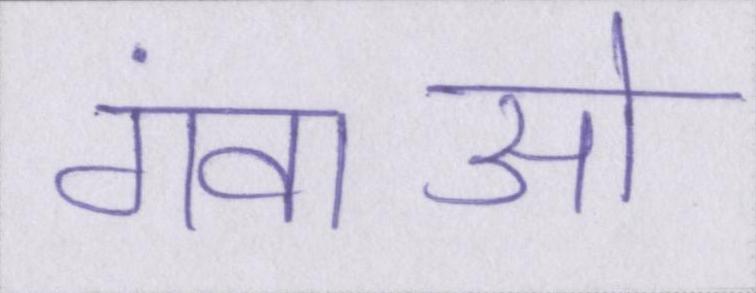 गंवाओ